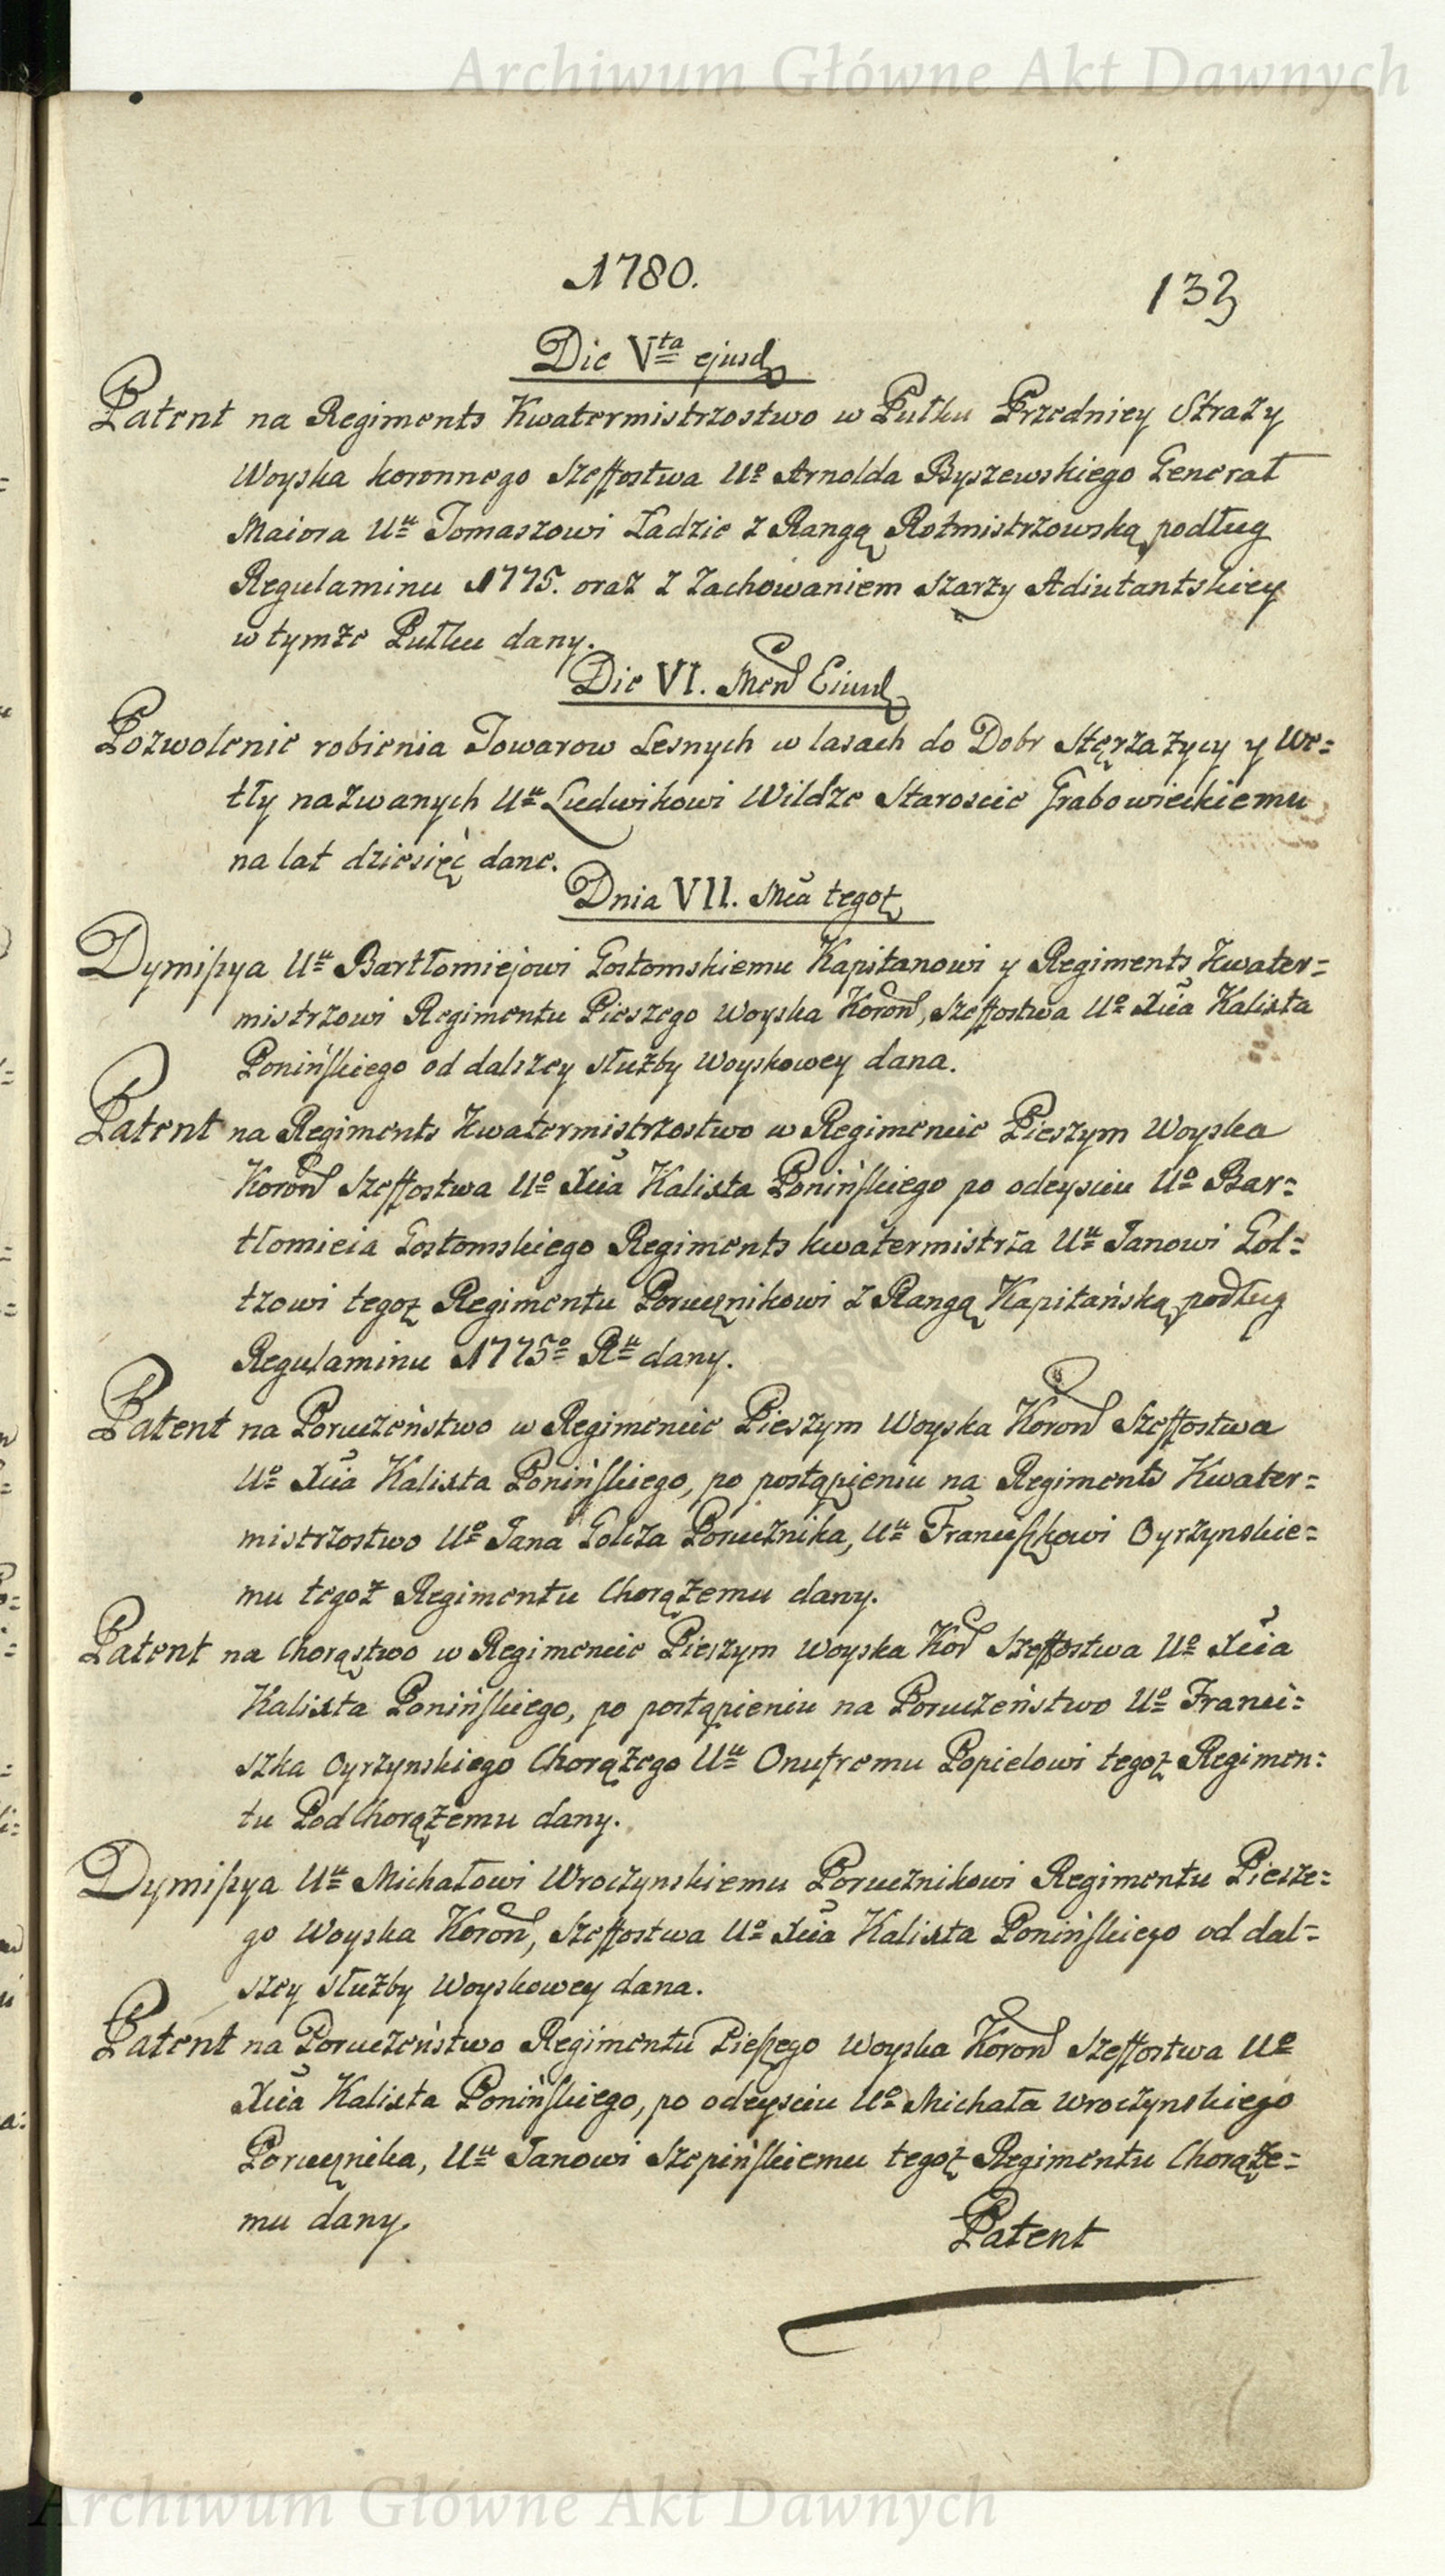 Archiwum Główne Akt Dawnych
1780.
133
Die Vta ejusd
Patent na Regiments Kwatermistrzostwo w Pułku Przedniey Straży
Woyska koronnego Szeffostwa Uo Arnolda Byszewskiego Generał
Maiora Uu Tomaszowi Ładzie z Rangą Rotmistrzowską podług
Regulaminu 1775. oraz z zachowaniem Szarży Adiutantskiey
w tymże Pułku dany.
Die VI. Men Eiusd
Pozwolenie robienia Towarow Lesnych w lasach do Dobr Stężarzycy y We=
tły nazwanych Uu Ludwikowi Wildze Staroscie Grabowieckiemu
na lat dziesięć dane.
Dnia VII. Mca tegoż
Dymissya Uu Bartłomiejowi Gostomskiemu Kapitanowi y Regiments Kwater=
mistrzowi Regimentu Pieszego Woyska Koron, Szeffostwa Uo Xcia Kalixta
Ponińskiego od dalszey służby Woyskowey dana.
Patent na Regiments Kwatermistrzostwo w Regimencie Pieszym Woyska
Koron Szeffostwa Uo Xcia Kalixta Ponińskiego po odeysciu Uo Bar=
tłomieia Gostomskiego Regiments kwatermistrza Uu Janowi Gol=
tzowi tegoż Regimentu Porucznikowi z Rangą Kapitańską podług
Regulaminu 1775o Ru dany.
Patent na Poruczeństwo w Regimencie Pieszym Woyska Koron Szeffostwa
Uo Xcia Kalixta Ponińskiego, po postąpieniu na Regiments Kwater=
mistrzostwo Uo Jana Golcza Porucznika, Uu Franciszkowi Oyrzynskie=
mu tegoż Regimentu Chorążemu dany.
Patent na Chorąstwo w Regimencie Pieszym Woyska Kor Szeffostwa Uo Xcia
Kalixta Ponińskiego, po postąpieniu na Poruczeństwo Uo Franci=
szka Oyrzynskiego Chorążego Uu Onufremu Popielowi tegoż Regimen=
tu PodChorążemu dany.
Dymissya Uu Michałowi Wroczynskiemu Porucznikowi Regimentu Piesze=
go Woyska Koron, Szeffostwa Uo Xcia Kalixta Ponińskiego od dal=
szey służby Woyskowey dana.
Patent na Poruczeństwo Regimentu Pieszego Woyska Koron Szeffostwa Uo
Xcia Kalixta Ponińskiego, po odeysciu Uo Michała Wroczynskiego
Porucznika, Uu Janowi Szepińskiemu tegoż Regimentu Chorąże=
mu dany.
Patent
Archiwum Główne Akt Dawnych